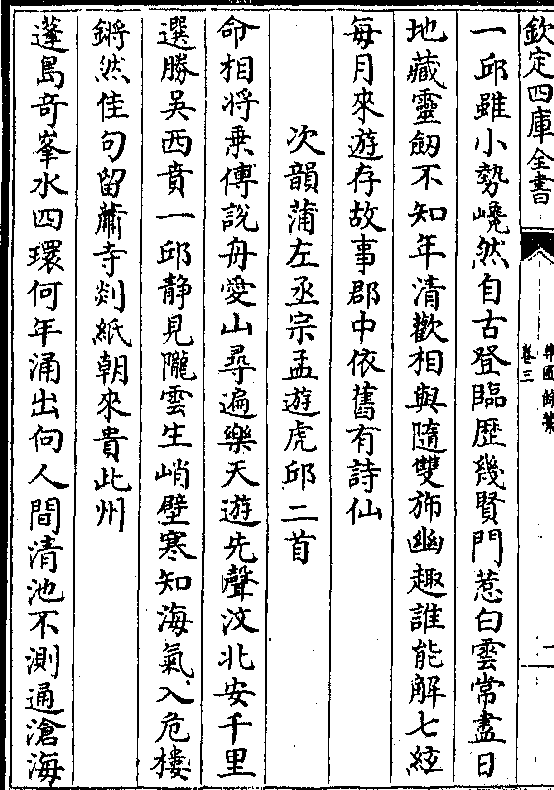 欽定四庫全書
卷三
一邱雖小勢嶢然自古登臨歴幾賢門惹白雲常盡日
地藏靈劒不知年清歡相與隨雙斾幽趣誰能解七絃
每月來遊存故事郡中依舊有詩仙
次韻蒲左丞宗孟遊虎邱二首
命相將乗傅說舟愛山尋遍樂天遊先聲汶北安千里
選勝吳西賁一邱静見隴雲生峭壁寒知海氣入危樓
鏘然佳句留蕭寺剡紙朝來貴此州
蓬島奇峯水四環何年涌出向人間清池不測通滄海